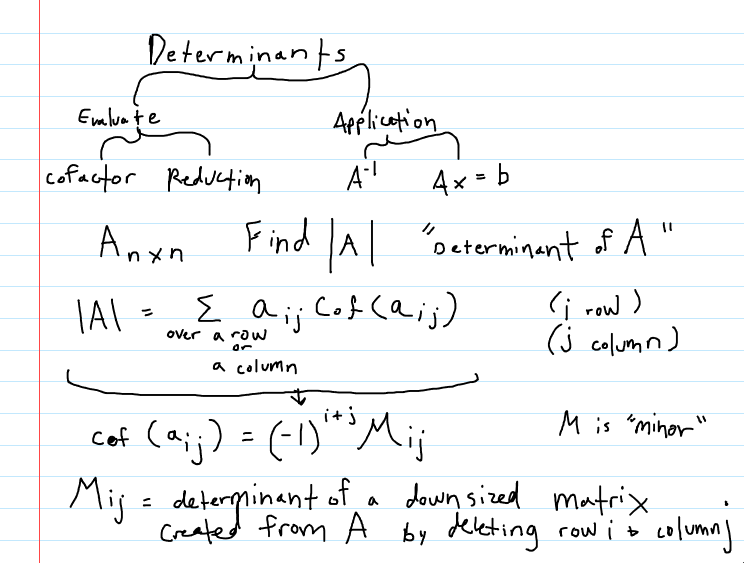 Determinants
Evaluate Application
cofactor Reduction A⁻¹ Ax = b
A n×n Find |A| "Determinant of A"
|A| = Σ a_ij Cof(a_ij) (i row)
over a row
or
a column
(j column)
cof (a_ij) = (-1)^(i+j) M_ij M is "minor"
M_ij = determinant of a downsized matrix
created from A by deleting row i & column j